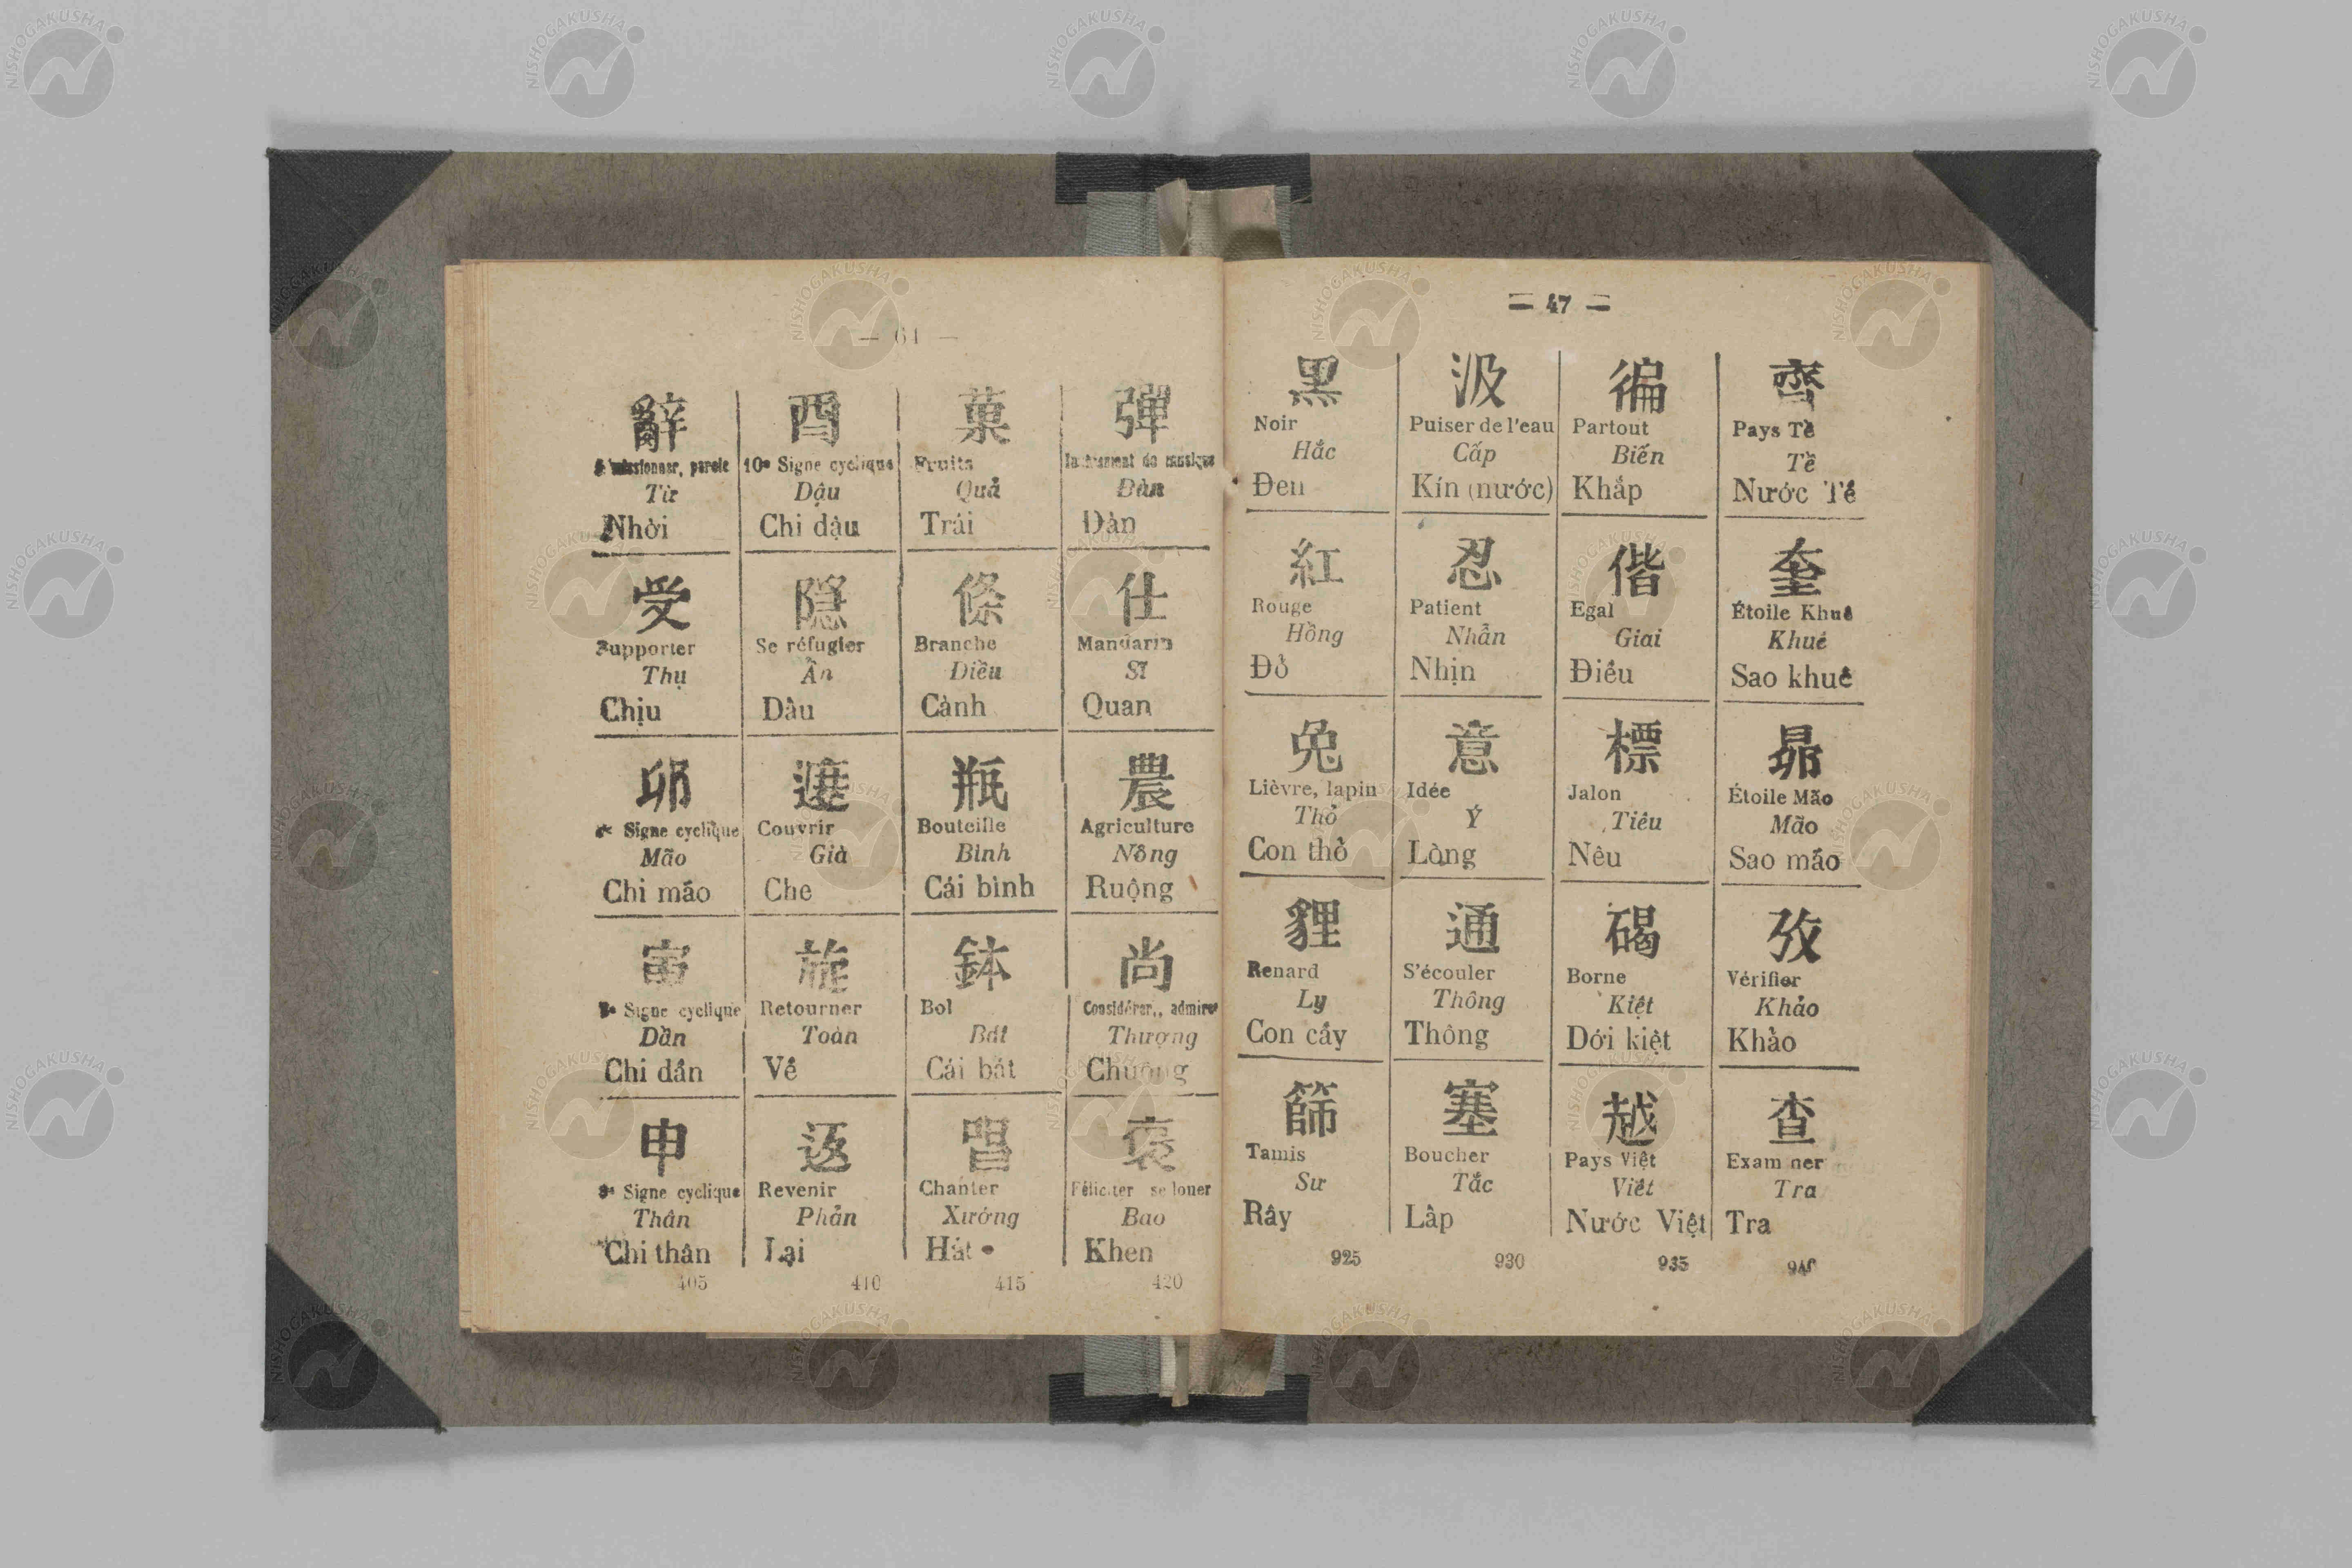 — 61 —
辭
酉
菓
彈
10e Signe cyclique
Fruits
Instrument de musique
Từ
Dậu
Quả
Đàn
Nhời
Chi dậu
Trái
Đàn
受
隠
條
仕
Supporter
Se réfugier
Branche
Mandarin
Thụ
Ẩn
Điều
Sĩ
Chịu
Dấu
Cành
Quan
卯
遮
瓶
農
Signe cyclique
Couvrir
Bouteille
Agriculture
Mão
Già
Bình
Nông
Chi mão
Che
Cái bình
Ruộng
寅
旋
鉢
尚
Signe cyclique
Retourner
Bol
Considérer,, admirer
Dần
Toàn
Bát
Thượng
Chi dần
Về
Cái bát
Chuộng
申
返
唱
褒
Signe cyclique
Revenir
Chanter
Féliciter se louer
Thân
Phản
Xướng
Bao
Chi thân
Lại
Hát
Khen
405
410
415
420
— 47 —
黑
汲
徧
齊
Noir
Puiser de l'eau
Partout
Pays Tề
Hắc
Cấp
Biến
Tề
Đen
Kín (nước)
Khắp
Nước Tề
紅
忍
偕
奎
Rouge
Patient
Egal
Étoile Khuê
Hồng
Nhẫn
Giai
Khuê
Đỏ
Nhịn
Điều
Sao khuê
兔
意
標
昴
Lièvre, lapin
Idée
Jalon
Étoile Mão
Thỏ
Ý
Tiêu
Mão
Con thỏ
Lòng
Nêu
Sao mão
貍
通
碣
攷
Renard
S'écouler
Borne
Vérifier
Ly
Thông
Kiệt
Khảo
Con cầy
Thông
Dới kiệt
Khảo
篩
塞
越
查
Tamis
Boucher
Pays Việt
Exam ner
Sư
Tắc
Việt
Tra
Rây
Lấp
Nước Việt
Tra
925
930
935
940